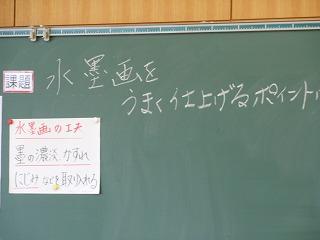 課題
水墨画を
うまく仕上げるポイントは
水墨画の工夫
墨の濃淡、かすれ
にじみなどを取り入れる